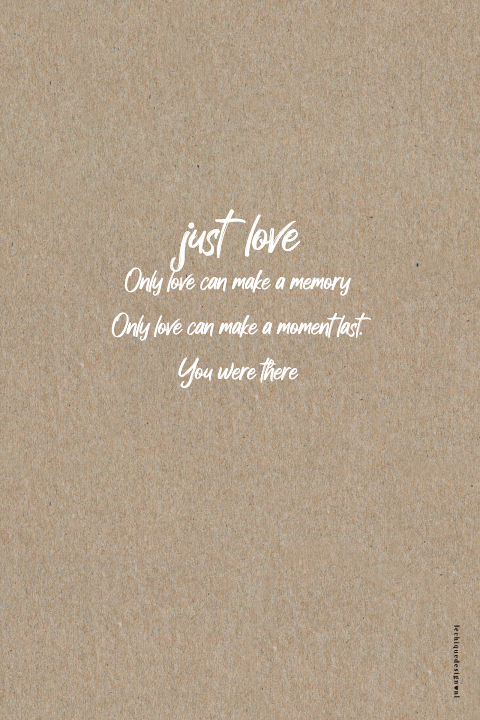 just love
Only love can make a memory
Only love can make a moment last.
You were there
lechiquedesign♥nl